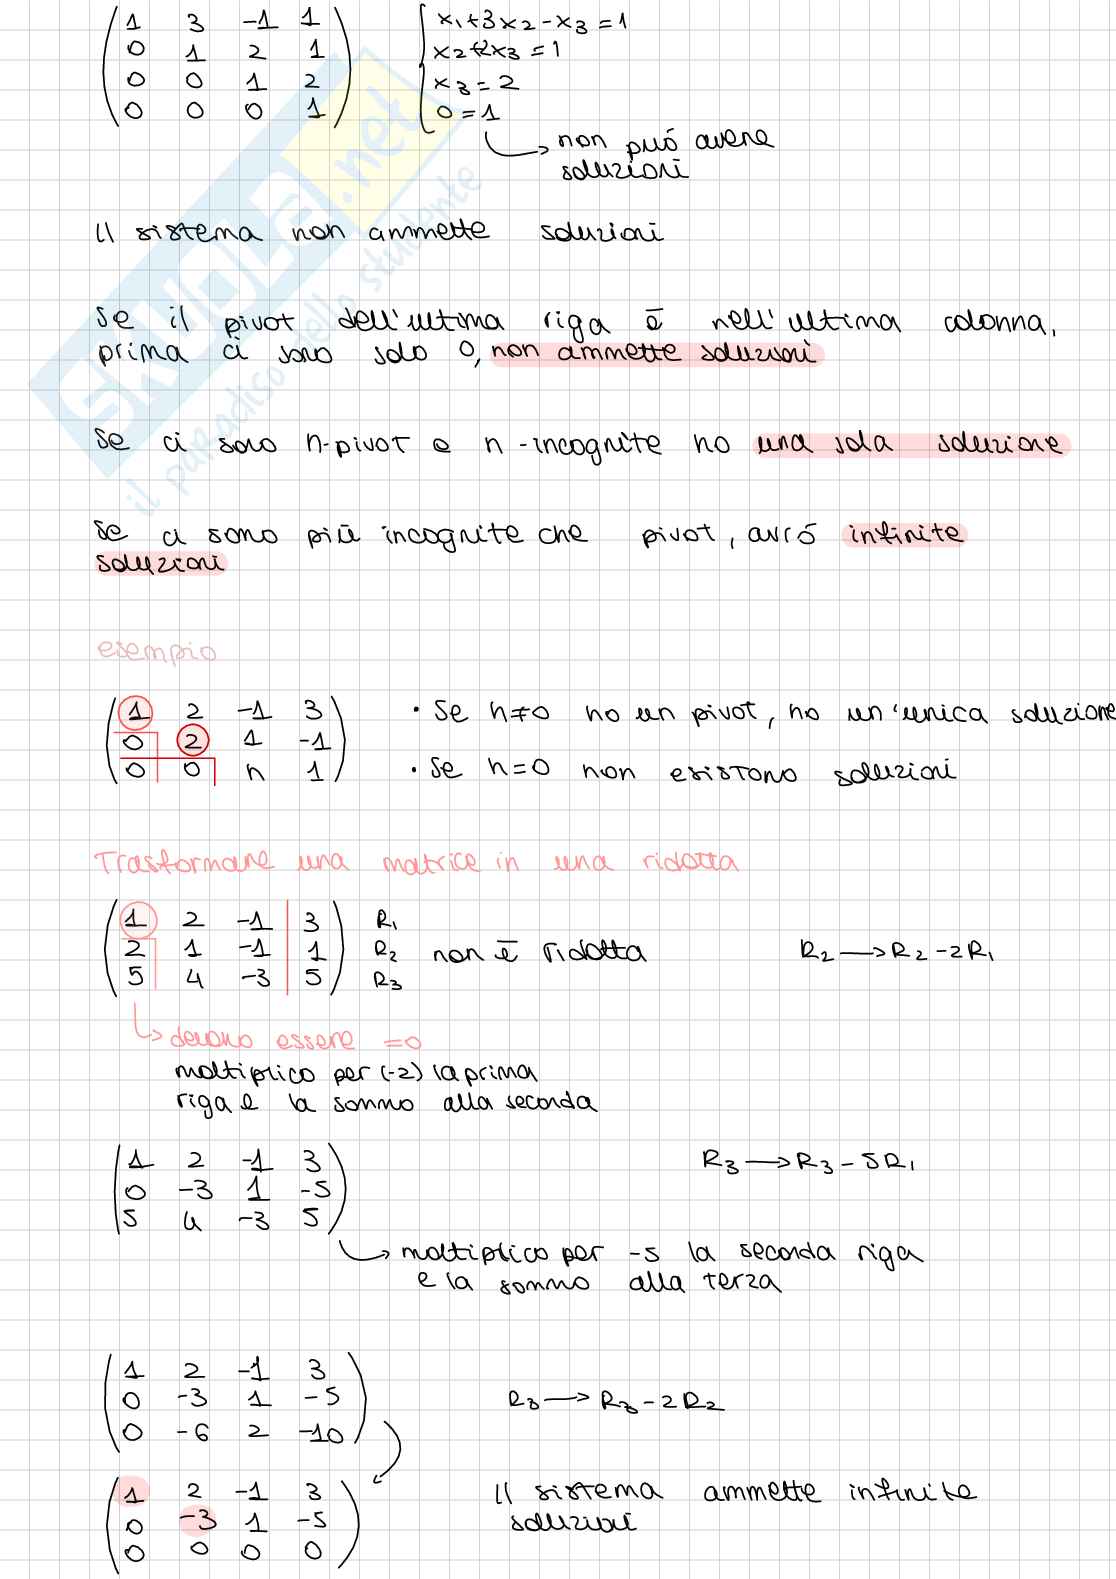 1 3 -1 1
0 1 2 1
0 0 1 2
0 0 0 1
x₁+3x₂-x₃=1
x₂+2x₃=1
x₃=2
0=1
non può avere
soluzioni
Il sistema non ammette soluzioni
Se il pivot dell'ultima riga è nell'ultima colonna,
prima ci sono solo 0, non ammette soluzioni
Se ci sono n-pivot e n-incognite ho una sola soluzione
Se ci sono più incognite che pivot, avrò infinite
soluzioni
esempio
1 2 -1 3
0 2 1 -1
0 0 h 1
• Se h≠0 ho un pivot, ho un'unica soluzione
• Se h=0 non esistono soluzioni
Trasformare una matrice in una ridotta
1 2 -1 3 R₁
2 1 -1 1 R₂ non è ridotta R₂→R₂-2R₁
5 4 -3 5 R₃
devono essere =0
moltiplico per (-2) la prima
riga e la sommo alla seconda
1 2 -1 3
0 -3 1 -5
5 4 -3 5
R₃→R₃-5R₁
moltiplico per -5 la seconda riga
e la sommo alla terza
1 2 -1 3
0 -3 1 -5
0 -6 2 -10
R₃→R₃-2R₂
1 2 -1 3
0 -3 1 -5
0 0 0 0
Il sistema ammette infinite
soluzioni
SKUOLA.net
il paradiso dello studente